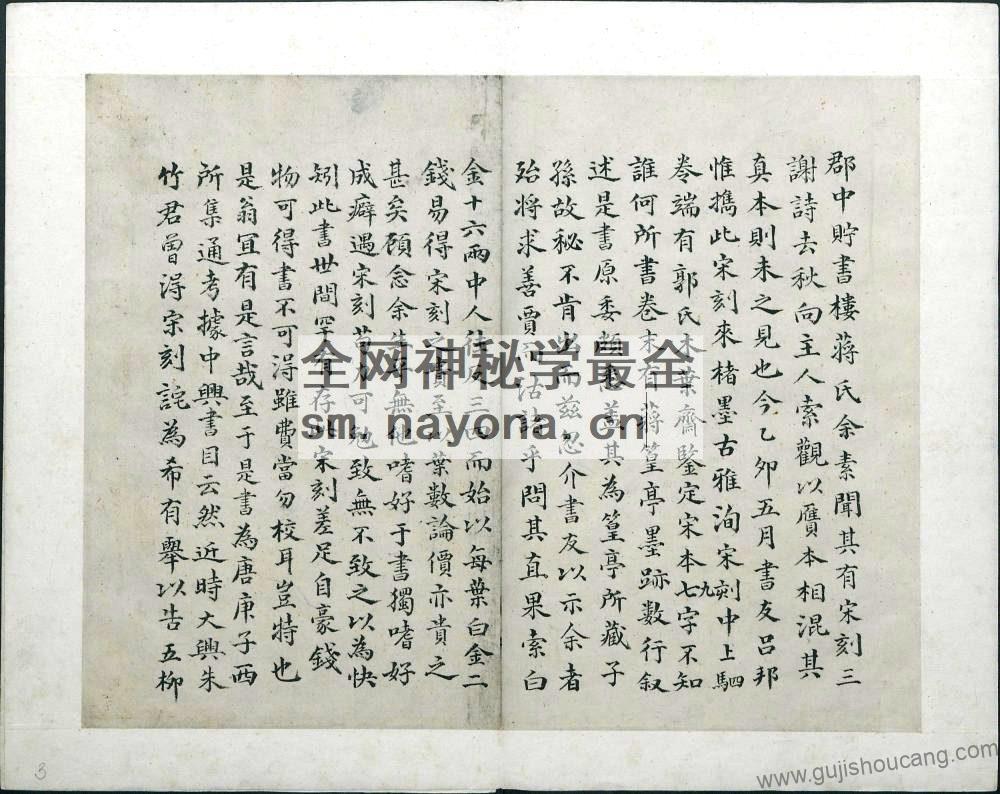 郡中貯書樓蔣氏余素聞其有宋刻三
謝詩去秋向主人索觀以贋本相混其
真本則未之見也今乙卯五月書友呂邦
惟擕此宋刻來楮墨古雅洵宋刻中上駟
九
卷端有郭氏木葉齋鑒定宋本七字不知
誰何所書卷末有蔣篁亭墨跡數行叙
述是書原委頗其為篁亭所藏子
孫故秘不肯而兹忽介書友以示余者
殆將求善賈沽諸乎問其直果索白
金十六兩中人往三四而始以每葉白金二
錢易得宋刻之貴至以葉數論價亦貴之
甚矣顧念余無他嗜好于書獨嗜好
成癖遇宋刻苟可勉致無不致之以為快
矧此書世間罕有存宋刻差足自豪錢
物可得書不可得雖費當勿校耳豈特也
是翁宜有是言哉至于是書為唐庚子西
所集通考據中興書目云然近時大興朱
竹君曾得宋刻詫為希有舉以告五柳
全网神秘学最全
sm.nayona.cn
3
www.gujishoucang.com